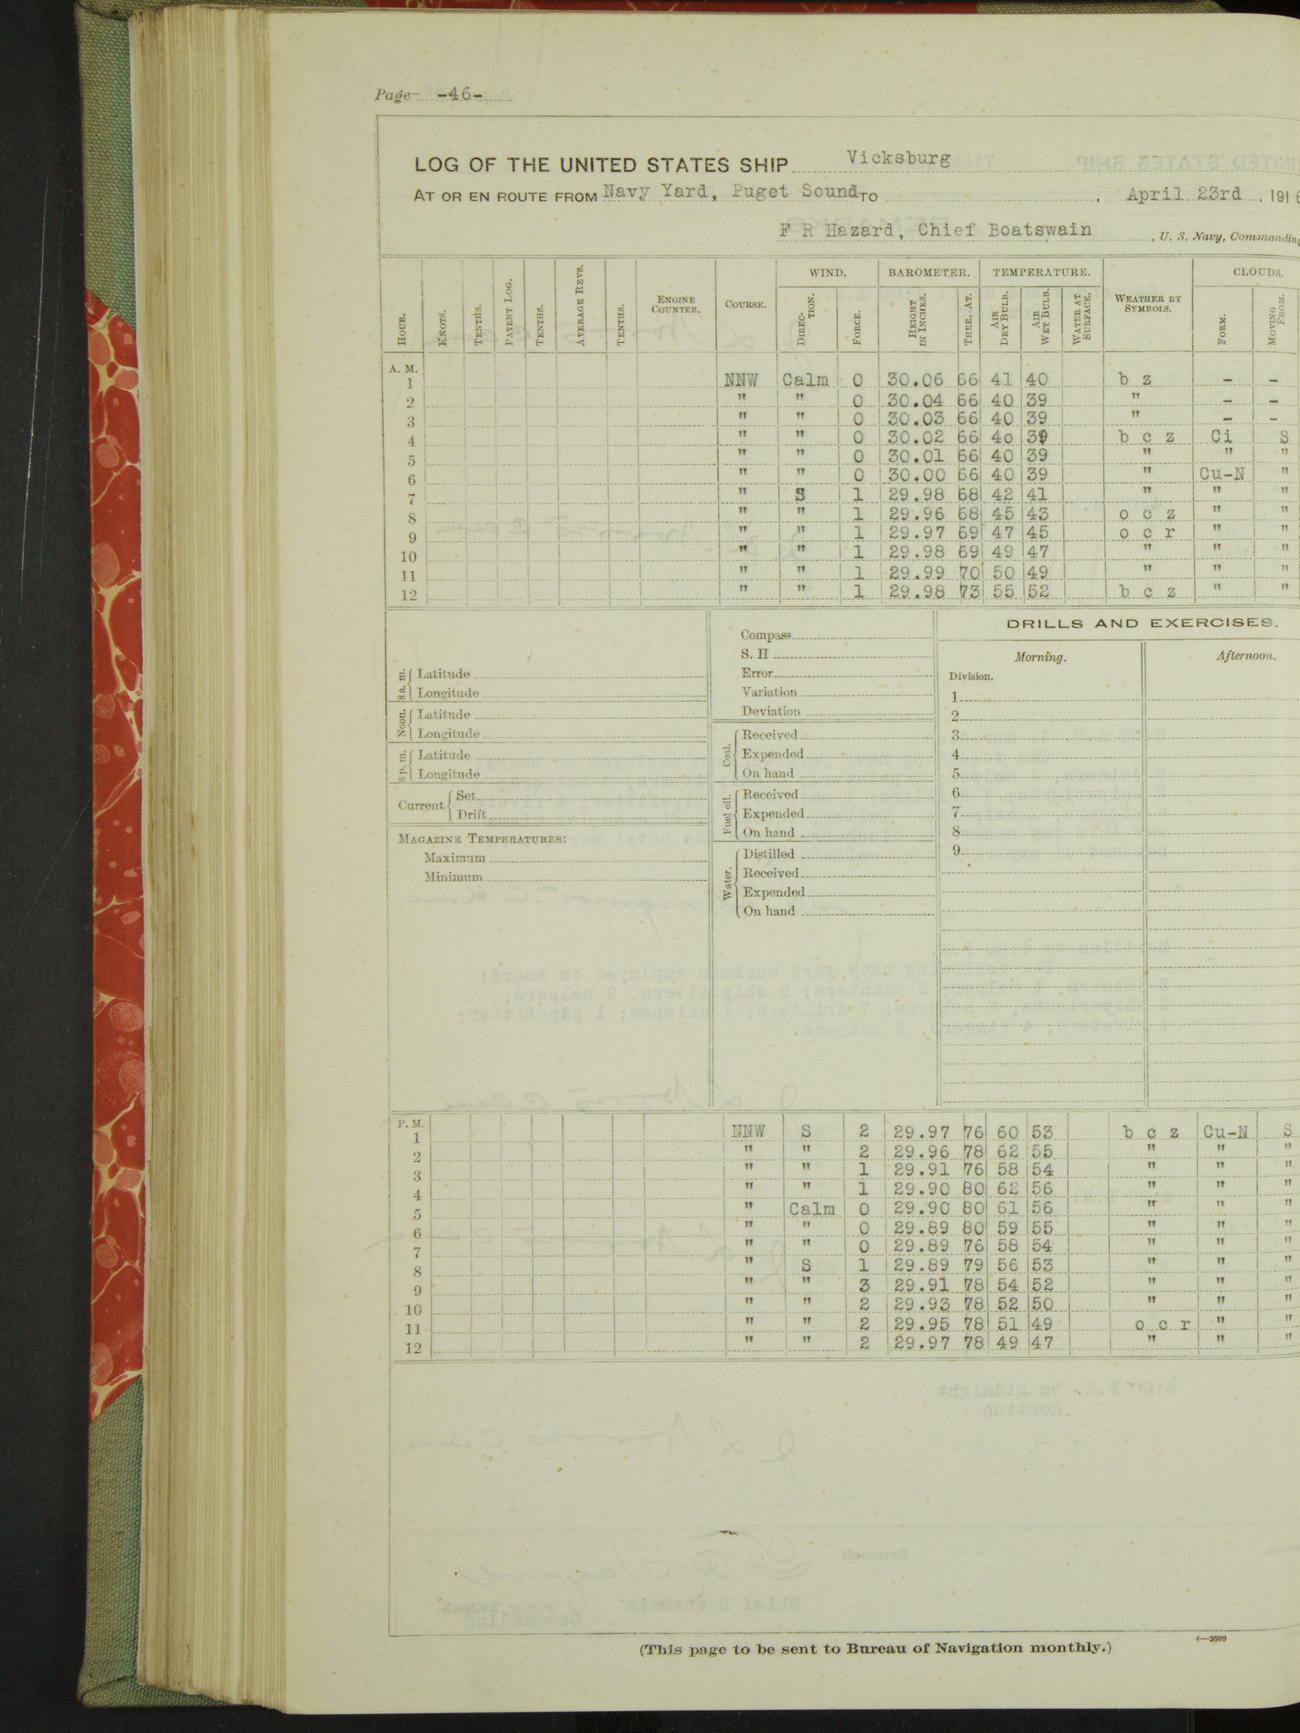 Page -46-
LOG OF THE UNITED STATES SHIP Vicksburg
AT OR EN ROUTE FROM Navy Yard, Puget Sound TO , April 23rd , 1916
F R Hazard, Chief Boatswain , U. S. Navy, Commanding
WIND. BAROMETER. TEMPERATURE. CLOUDS.
HOUR. KNOTS. TENTHS. PATENT LOG. TENTHS. AVERAGE REVS. TENTHS. ENGINE COUNTER. COURSE. DIREC-TION. FORCE. HEIGHT IN INCHES. THER. AT. AIR DRY BULB. AIR WET BULB. WATER AT SURFACE. WEATHER BY SYMBOLS. FORM. MOVING FROM.
A. M.
1 NNW Calm 0 30.06 66 41 40 b z - -
2 " " 0 30.04 66 40 39 " - -
3 " " 0 30.03 66 40 39 " - -
4 " " 0 30.02 66 4o 39 b c z Ci S
5 " " 0 30.01 66 40 39 " " "
6 " " 0 30.00 66 40 39 " Cu-N "
7 " S 1 29.98 68 42 41 " " "
8 " " 1 29.96 68 45 43 o c z " "
9 " " 1 29.97 69 47 45 o c r " "
10 " " 1 29.98 69 49 47 " " "
11 " " 1 29.99 70 50 49 " " "
12 " " 1 29.98 73 55 52 b c z " "
8 a. m. Latitude
Longitude
Noon. Latitude
Longitude
8 p. m. Latitude
Longitude
Current Set
Drift
MAGAZINE TEMPERATURES:
Maximum
Minimum
Compass
S. H
Error
Variation
Deviation
Coal. Received
Expended
On hand
Fuel oil. Received
Expended
On hand
Water. Distilled
Received
Expended
On hand
DRILLS AND EXERCISES.
Morning. Afternoon.
Division.
1
2
3
4
5
6
7
8
9
P. M.
1 NNW S 2 29.97 76 60 53 b c z Cu-N S
2 " " 2 29.96 78 62 55 " " "
3 " " 1 29.91 76 58 54 " " "
4 " " 1 29.90 80 62 56 " " "
5 " Calm 0 29.90 80 61 56 " " "
6 " " 0 29.89 80 59 55 " " "
7 " " 0 29.89 76 58 54 " " "
8 " S 1 29.89 79 56 53 " " "
9 " " 3 29.91 78 54 52 " " "
10 " " 2 29.93 78 52 50 " " "
11 " " 2 29.95 78 51 49 o c r " "
12 " " 2 29.97 78 49 47 " " "
(This page to be sent to Bureau of Navigation monthly.)